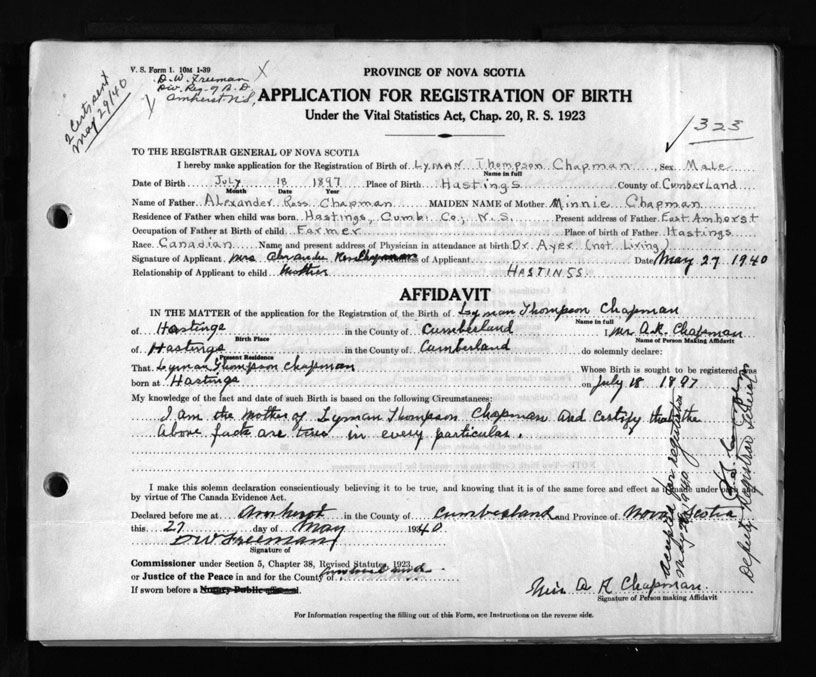 V. S. Form 1. 10M 1-39
D. W. Freeman
Div. Reg. of B. D.
Amherst N.S.
2 Certs sent
May 29/40
PROVINCE OF NOVA SCOTIA
APPLICATION FOR REGISTRATION OF BIRTH
Under the Vital Statistics Act, Chap. 20, R. S. 1923
323
TO THE REGISTRAR GENERAL OF NOVA SCOTIA
I hereby make application for the Registration of Birth of Lyman Thompson Chapman, Sex Male
Name in full
Date of Birth July 18 1897 Place of Birth Hastings County of Cumberland
Month Date Year
Name of Father Alexander Ross Chapman MAIDEN NAME of Mother Minnie Chapman
Residence of Father when child was born Hastings, Cumb. Co., N.S. Present address of Father East Amherst
Occupation of Father at Birth of child Farmer Place of birth of Father Hastings
Race Canadian Name and present address of Physician in attendance at birth Dr Ayer (not Living)
Signature of Applicant Mrs Alexander Ross Chapman Address of Applicant Date May 27 1940
Relationship of Applicant to child Mother HASTINGS
AFFIDAVIT
IN THE MATTER of the application for the Registration of the Birth of Lyman Thompson Chapman
Name in full
of Hastings in the County of Cumberland Mrs A.R. Chapman
Birth Place Name of Person Making Affidavit
of Hastings in the County of Cumberland do solemnly declare:
Present Residence
That Lyman Thompson Chapman Whose Birth is sought to be registered was
born at Hastings on July 18 1897
My knowledge of the fact and date of such Birth is based on the following Circumstances:
I am the mother of Lyman Thompson Chapman and certify that the
above facts are true in every particular.
I make this solemn declaration conscientiously believing it to be true, and knowing that it is of the same force and effect as if made under oath and
by virtue of The Canada Evidence Act.
Declared before me at Amherst in the County of Cumberland and Province of Nova Scotia
this 27 day of May 1940
D W Freeman
Signature of
Commissioner under Section 5, Chapter 38, Revised Statutes, 1923
or Justice of the Peace in and for the County of
If sworn before a Notary Public
Mrs A R Chapman
Signature of Person making Affidavit
For Information respecting the filling out of this Form, see Instructions on the reverse side.
accepted for registration
Deputy Registrar General